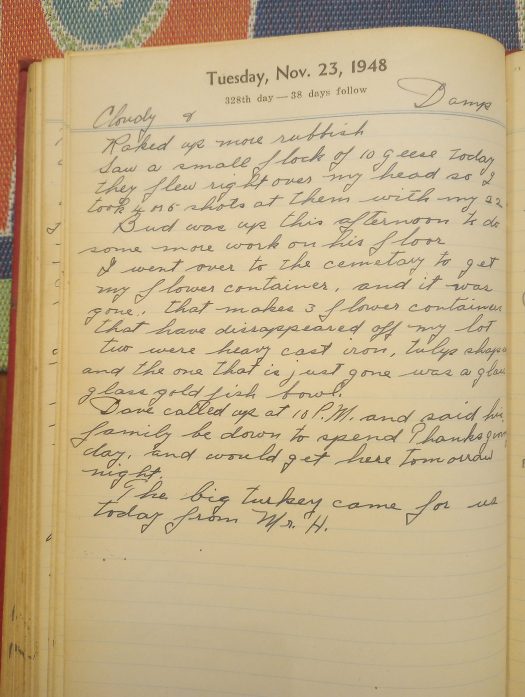 Tuesday, Nov. 23, 1948
328th day — 38 days follow
Cloudy & Damp
Raked up more rubbish
Saw a small flock of 10 geese today
they flew right over my head so I
took 4 or 5 shots at them with my 22
Bud was up this afternoon to do
some more work on his floor
I went over to the cemetary to get
my flower container, and it was
gone, that makes 3 flower containers
that have dissappeared off my lot
two were heavy cast iron, tulip shape
and the one that is just gone was a glass
glass gold fish bowl.
Dave called up at 10 P.M. and said his
family be down to spend Thanksgiving
day, and would get here tomorrow
night.
The big turkey came for us
today from Mr. H.